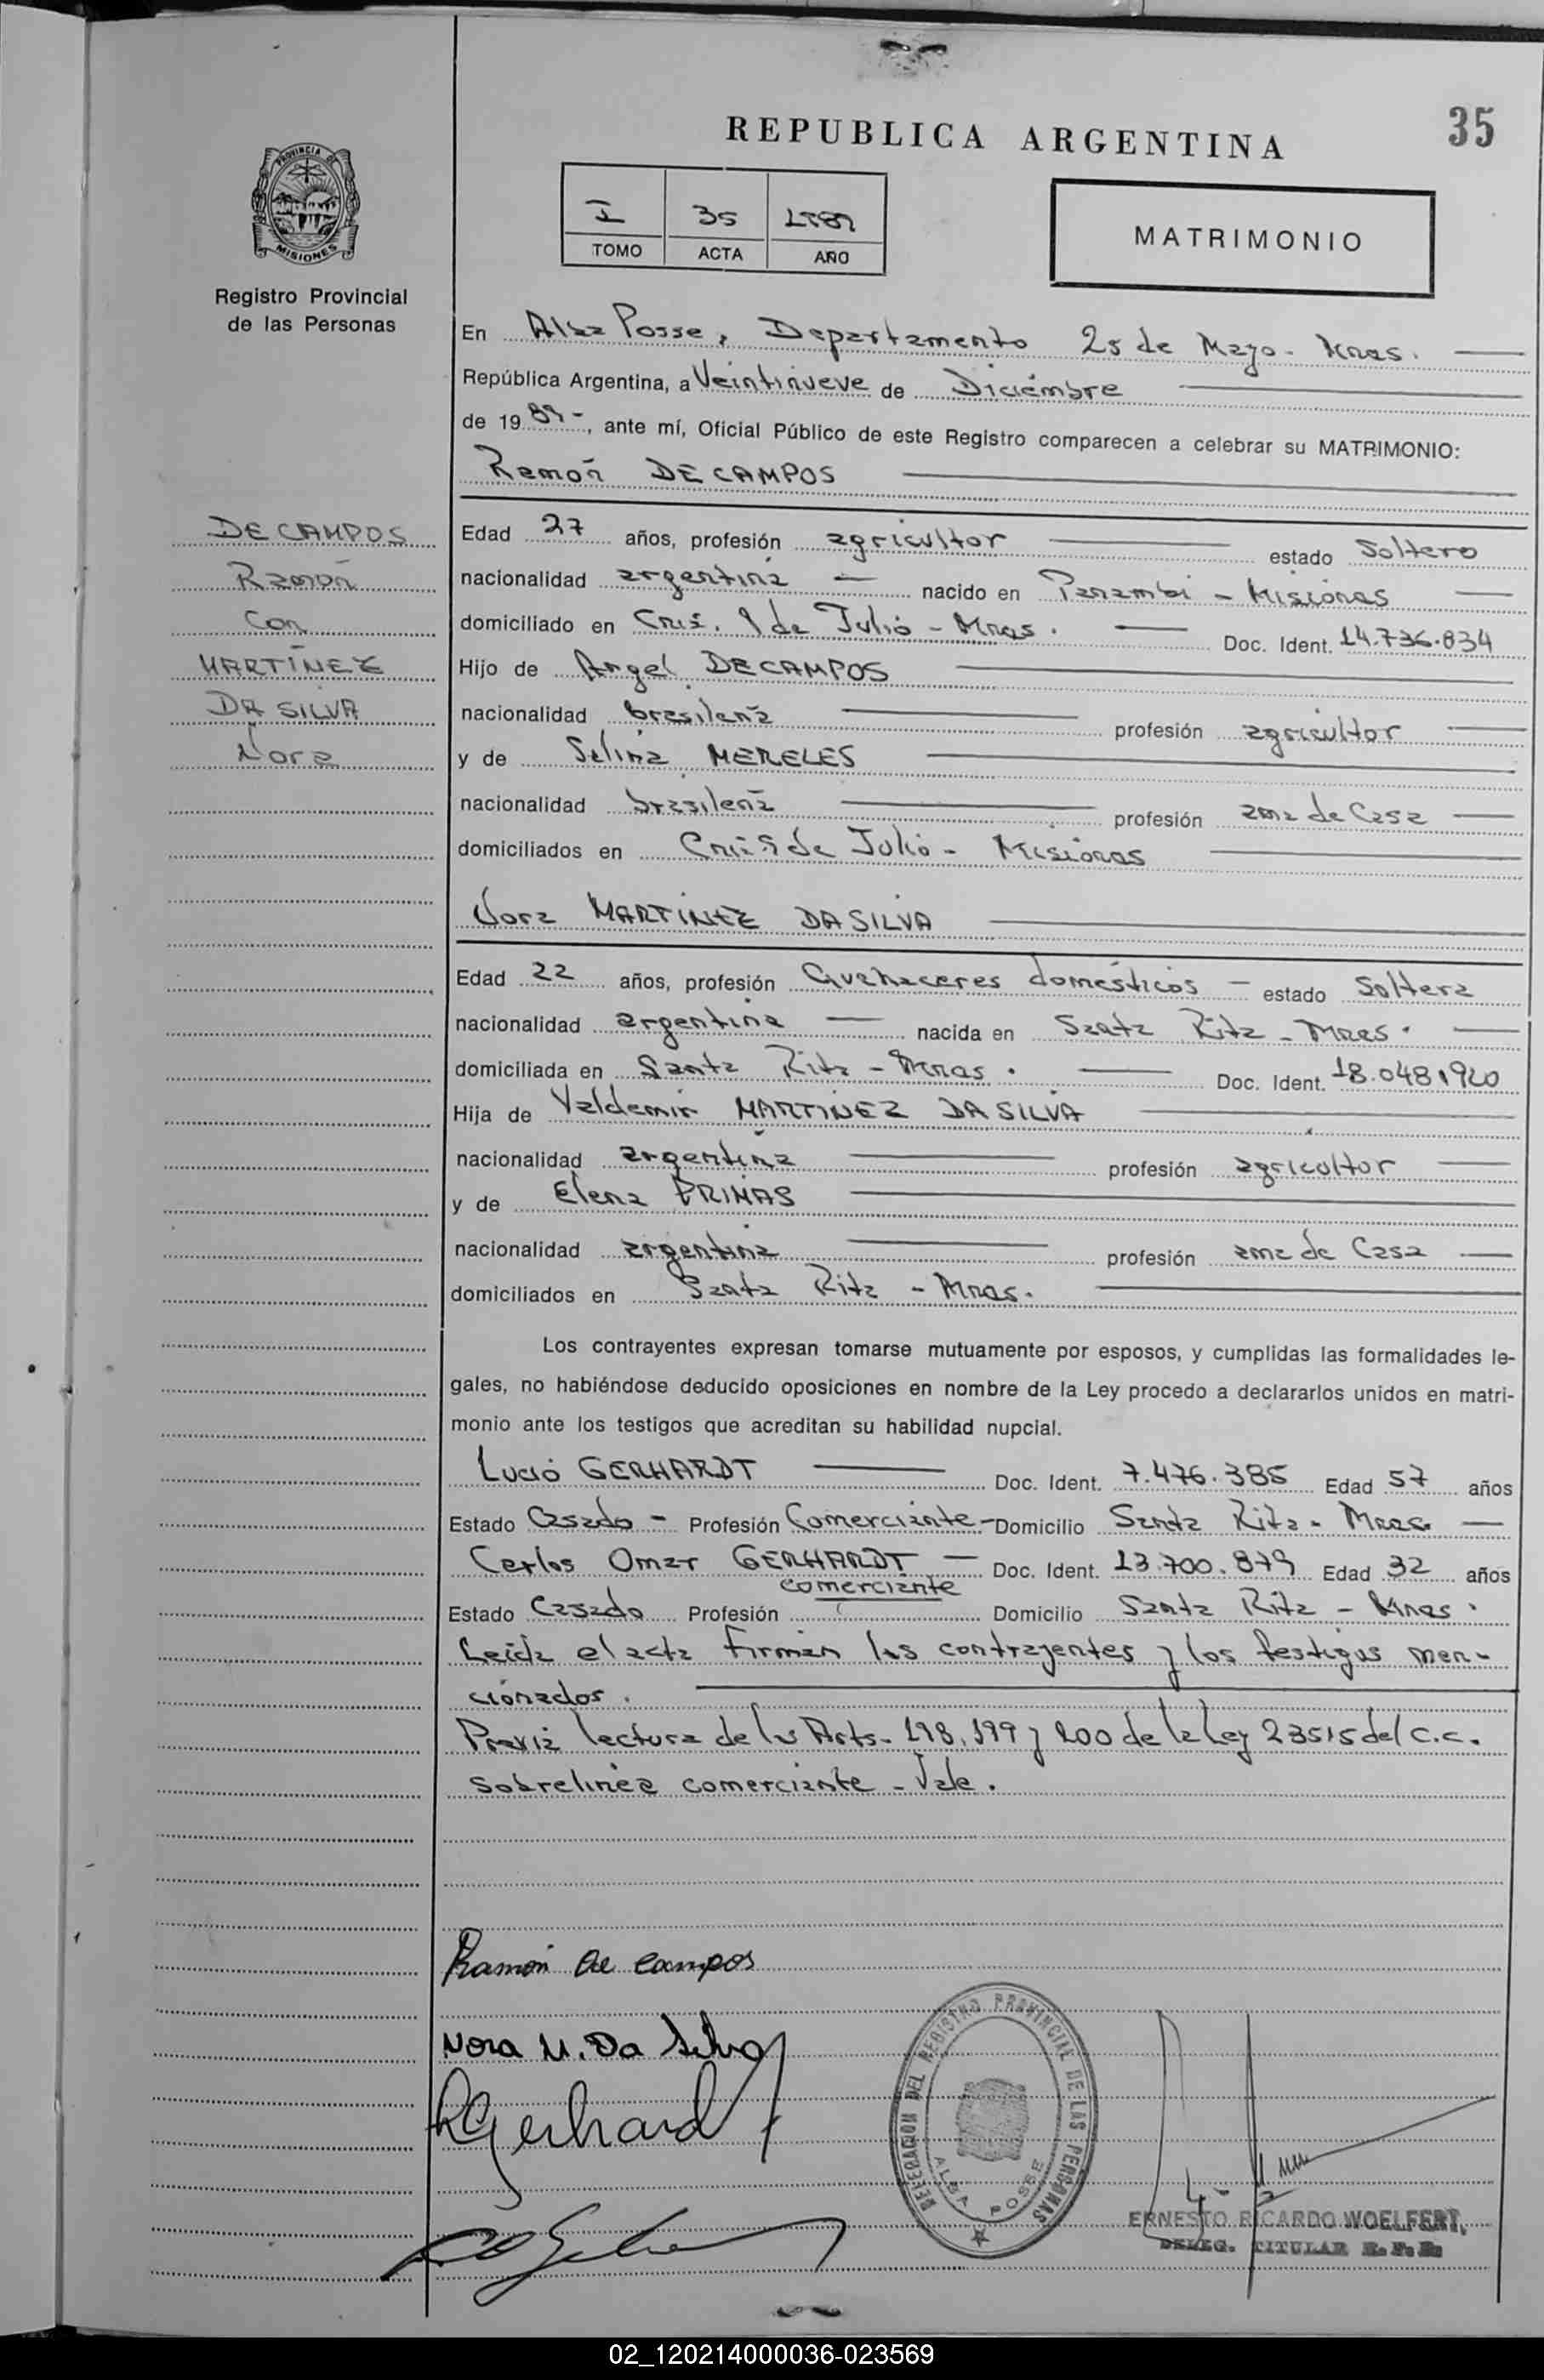 35
REPUBLICA ARGENTINA
PROVINCIA DE
MISIONES
I 35 1989
TOMO ACTA AÑO
MATRIMONIO
Registro Provincial
de las Personas
En Alba Posse, Departamento 25 de Mayo - Mnes.
República Argentina, a Veintinueve de Diciembre
de 19 89-, ante mí, Oficial Público de este Registro comparecen a celebrar su MATRIMONIO:
Ramón DE CAMPOS
DE CAMPOS
Ramón
Con
MARTÍNEZ
DA SILVA
Nora
Edad 27 años, profesión agricultor estado Soltero
nacionalidad argentina nacido en Panambi - Misiones
domiciliado en 9 de Julio - Mnes. Doc. Ident. 14.736.834
Hijo de Angel DE CAMPOS
nacionalidad brasileña profesión agricultor
y de Selina MERELES
nacionalidad brasileña profesión ama de Casa
domiciliados en 9 de Julio - Misiones
Nora MARTINEZ DA SILVA
Edad 22 años, profesión Quehaceres domésticos - estado Soltera
nacionalidad argentina nacida en Santa Rita - Mnes.
domiciliada en Santa Rita - Mnes. Doc. Ident. 18.048.920
Hija de Valdemir MARTINEZ DA SILVA
nacionalidad argentina profesión agricultor
y de Elena
nacionalidad argentina profesión ama de Casa
domiciliados en Santa Rita - Mnes.
Los contrayentes expresan tomarse mutuamente por esposos, y cumplidas las formalidades le-
gales, no habiéndose deducido oposiciones en nombre de la Ley procedo a declararlos unidos en matri-
monio ante los testigos que acreditan su habilidad nupcial.
Lucio GERHARDT Doc. Ident. 7.476.385 Edad 57 años
Estado Casado - Profesión Comerciante - Domicilio Santa Rita - Mnes.
Carlos Omar GERHARDT - Doc. Ident. 13.700.879 Edad 32 años
comerciante
Estado Casado Profesión Domicilio Santa Rita - Mnes.
Leída el acta firman los contrayentes y los testigos men-
cionados.
Previa lectura de los Arts. 198, 199 y 200 de la Ley 23515 del C.C.
Sobrelinea comerciante - Vale.
Ramón de Campos
Nora M. Da Silva
Gerhard
DELEGACION DEL REGISTRO PROVINCIAL DE LAS PERSONAS
ALBA POSSE
ERNESTO RICARDO WOELFERT
DELEG. TITULAR R. P. P.
02_120214000036-023569